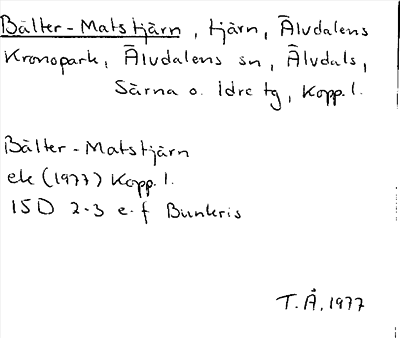 Bälter-Matstjärn, tjärn, Älvdalens
Kronopark, Älvdalens sn, Älvdals,
Särna o. Idre tg, Kopp. l.
Bälter-Matstjärn
ek (1977) Kopp. l.
15D 2-3 e-f Bunkris
T.Å. 1977